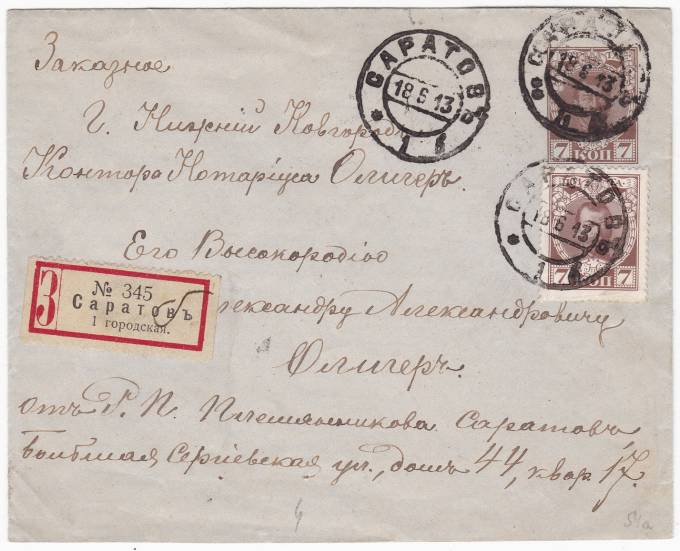 Заказное
Г. Нижній Новгородъ
Контора Нотаріуса Олигеръ.
Его Высокородію
Александру Александровичу
Олигеръ.
отъ Г. П. Племянникова Саратовъ,
Большая Сергіевская ул., домъ 44, квар 17.
З
№ 345
Саратовъ
1 городская.
САРАТОВЪ
18 6 13
1
САРАТОВЪ
18 6 13
7 КОП 7
САРАТОВЪ
18 6 13
1
7 КОП 7